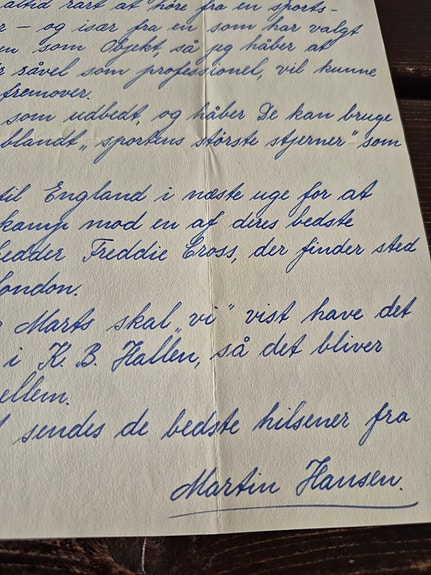 altid rart at høre fra en sports-
- og især fra en som har valgt
som Objekt, så jeg håber at
såvel som professionel, vil kunne
fremover.
som udbedt, og håber De kan bruge
blandt „sportens største stjerner" som
til England i næste uge for at
kamp mod en af deres bedste
hedder Freddie Cross, der finder sted
London.
Marts skal „vi" vist have det
i K. B. Hallen, så det bliver
ellem.
sendes de bedste hilsener fra
Martin Hansen.